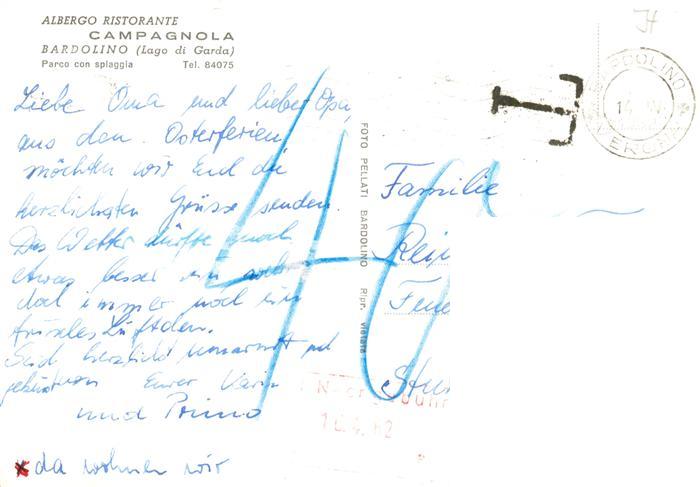 ALBERGO RISTORANTE
CAMPAGNOLA
BARDOLINO (Lago di Garda)
Parco con spiaggia Tel. 84075
Liebe Oma und lieber Opa,
aus den Osterferien
möchten wir Euch die
herzlichsten Grüsse senden.
Das Wetter dürfte noch
etwas besser
immer noch ein
frisches Lüftchen.
Seid herzlichst umarmt und
Eurer
und Primo
x da wohnen wir
FOTO PELLATI BARDOLINO Ripr. vietata
T
40
Familie
Stu